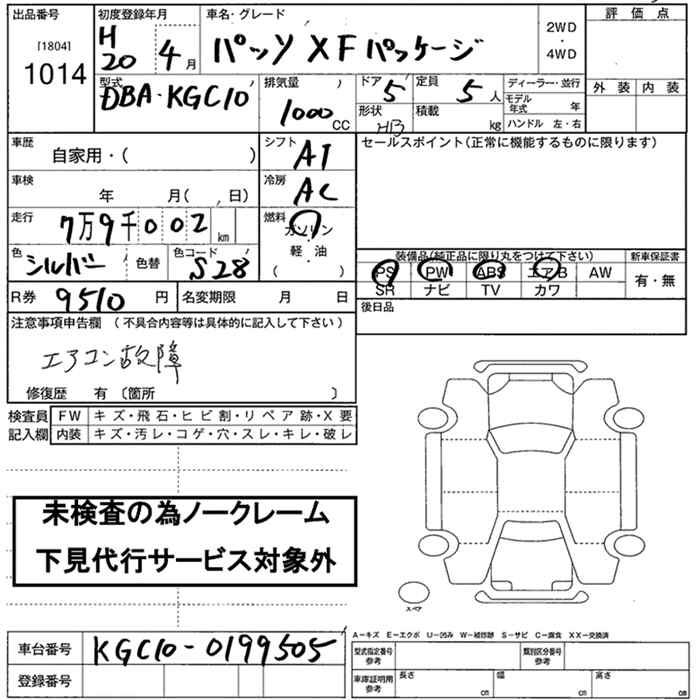 出品番号
[1804]
1014
初度登録年月
H
20 4 月
車名・グレード
パッソ XFパッケージ
2WD
・
4WD
評価点
外装 内装
型式
DBA-KGC10
排気量
1000 CC
ドア 5
定員 5 人
形状 HB
積載 kg
ディーラー・並行
モデル年式 年
ハンドル 左・右
車歴 自家用・( )
シフト AT
セールスポイント(正常に機能するものに限ります)
車検 年 月( , 日)
冷房 AC
走行 7万9千002 km
燃料
ガソリン
軽・油
( )
色 シルバー 色替
色コード S28
装備品(純正品に限り丸をつけて下さい)
新車保証書
PS PW ABS エアB AW
有・無
SR ナビ TV カワ
R券 9510 円
名変期限 月 日
後日品
注意事項申告欄 (不具合内容等は具体的に記入して下さい)
エアコン故障
修復歴 有 〔箇所 〕
検査員
記入欄
FW キズ・飛石・ヒビ割・リペア跡・X要
内装 キズ・汚レ・コゲ・穴・スレ・キレ・破レ
未検査の為ノークレーム
下見代行サービス対象外
スペア
A−キズ E−エクボ U−凹み W−補修跡 S−サビ C−腐食 XX−交換済
車台番号 KGC10-0199505
登録番号
型式指定番号
参考
類別区分番号
参考
車庫証明用
参考
長さ cm
幅 cm
高さ cm